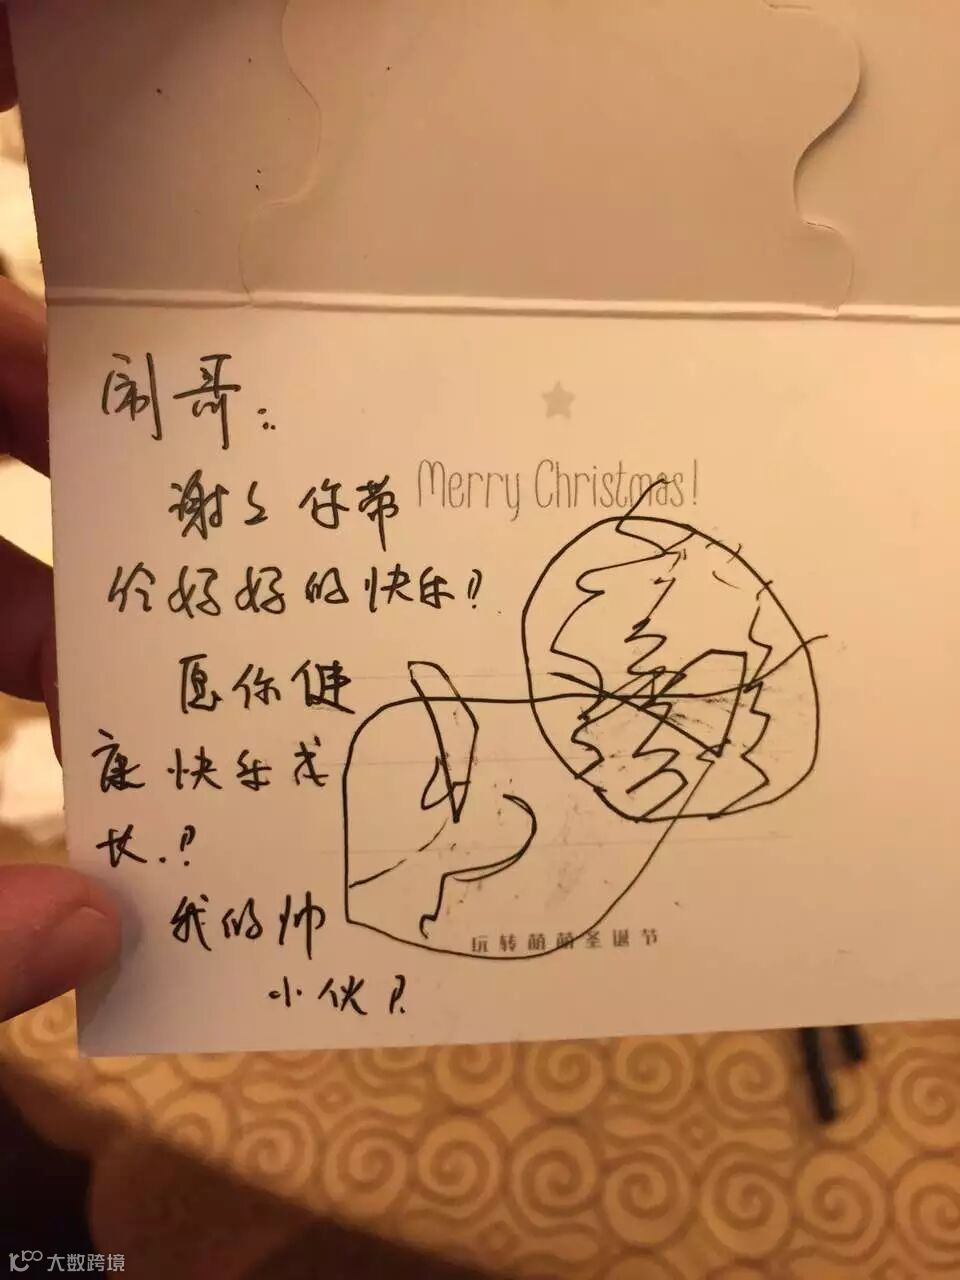 闹哥:
Merry Christmas!
谢谢你带
给好好的快乐!
愿你健
康快乐成
长!
我的帅
小伙!
玩转萌萌圣诞节
大数跨境